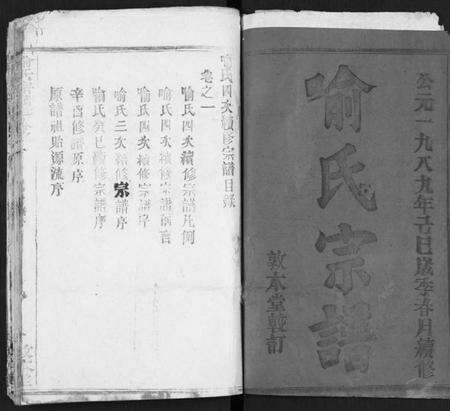 公元一九八九年己巳歲季春月續修
喻氏宗譜
敦本堂輯訂
喻氏四次續修宗譜目錄
卷之一
喻氏四次續修宗譜凡例
喻氏四次續修宗譜
喻氏四次續修宗譜序
喻氏三次續修宗譜序
喻氏癸巳續修宗譜序
辛酉修譜原序
原譜社貽源流序